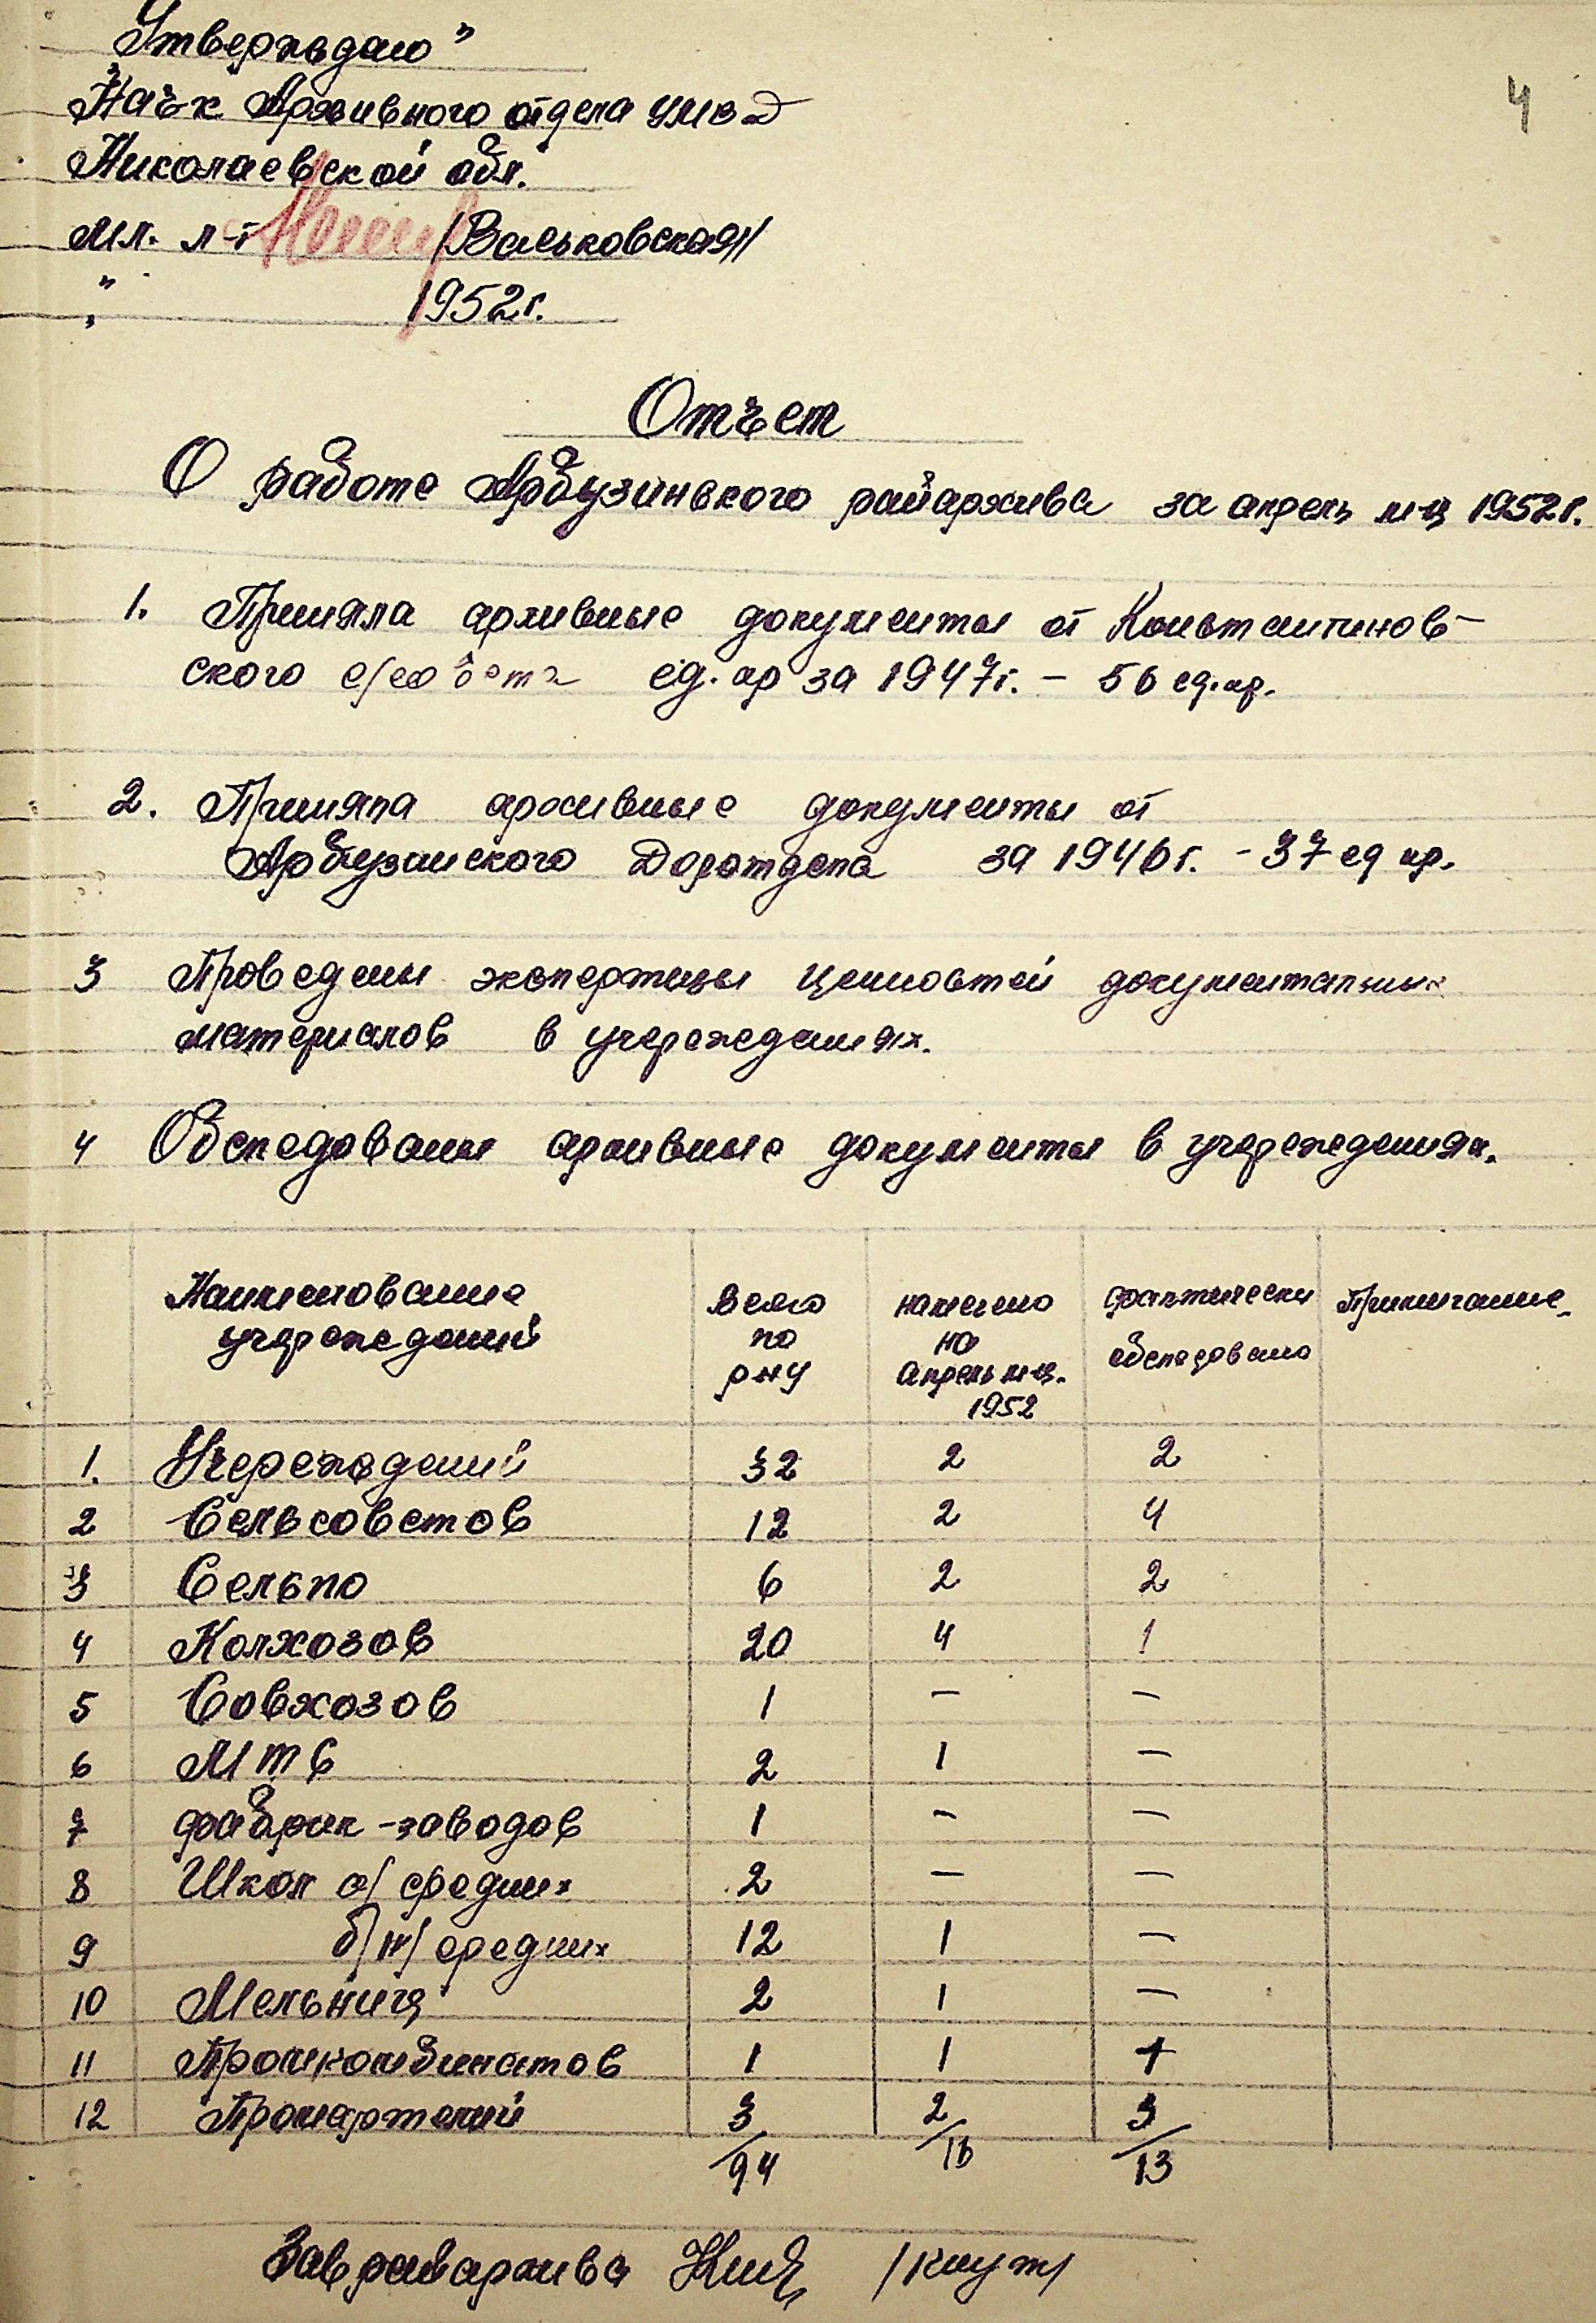 "Утверждаю"
Нач-к Архивного отдела УМВД
Николаевской обл.
мл. л-т /Васьковская/
" " 1952г.
4
Отчет
О работе Арбузинского райархива за апрель м-ц 1952г.
1. Приняла архивные документы от Константинов-
ского с/совета ед. хр за 1947г. – 56 ед. хр.
2. Приняла архивные документы от
Арбузинского Доротдела за 1946г. - 37 ед хр.
3 Проведены экспертизы ценностей документальных
материалов в учереждениях.
4 Обследованы архивные документы в учереждениях.
Наименование учереждений | всего по р-ну | намечено на апрель м-ц. 1952 | фактически обследовано | Примичание
1. Учереждений 32 2 2
2 Сельсоветов 12 2 4
3 Сельпо 6 2 2
4 Колхозов 20 4 1
5 Совхозов 1 – –
6 МТС 2 1 –
7 фабрик-заводов 1 – –
8 Школ а/ средних 2 – –
9 б/ н/средних 12 1 –
10 Мельниц 2 1 –
11 Промкомбинатов 1 1 1
12 Промартелий 3 2 3
/94 /16 /13
Завройархива /Кнут/